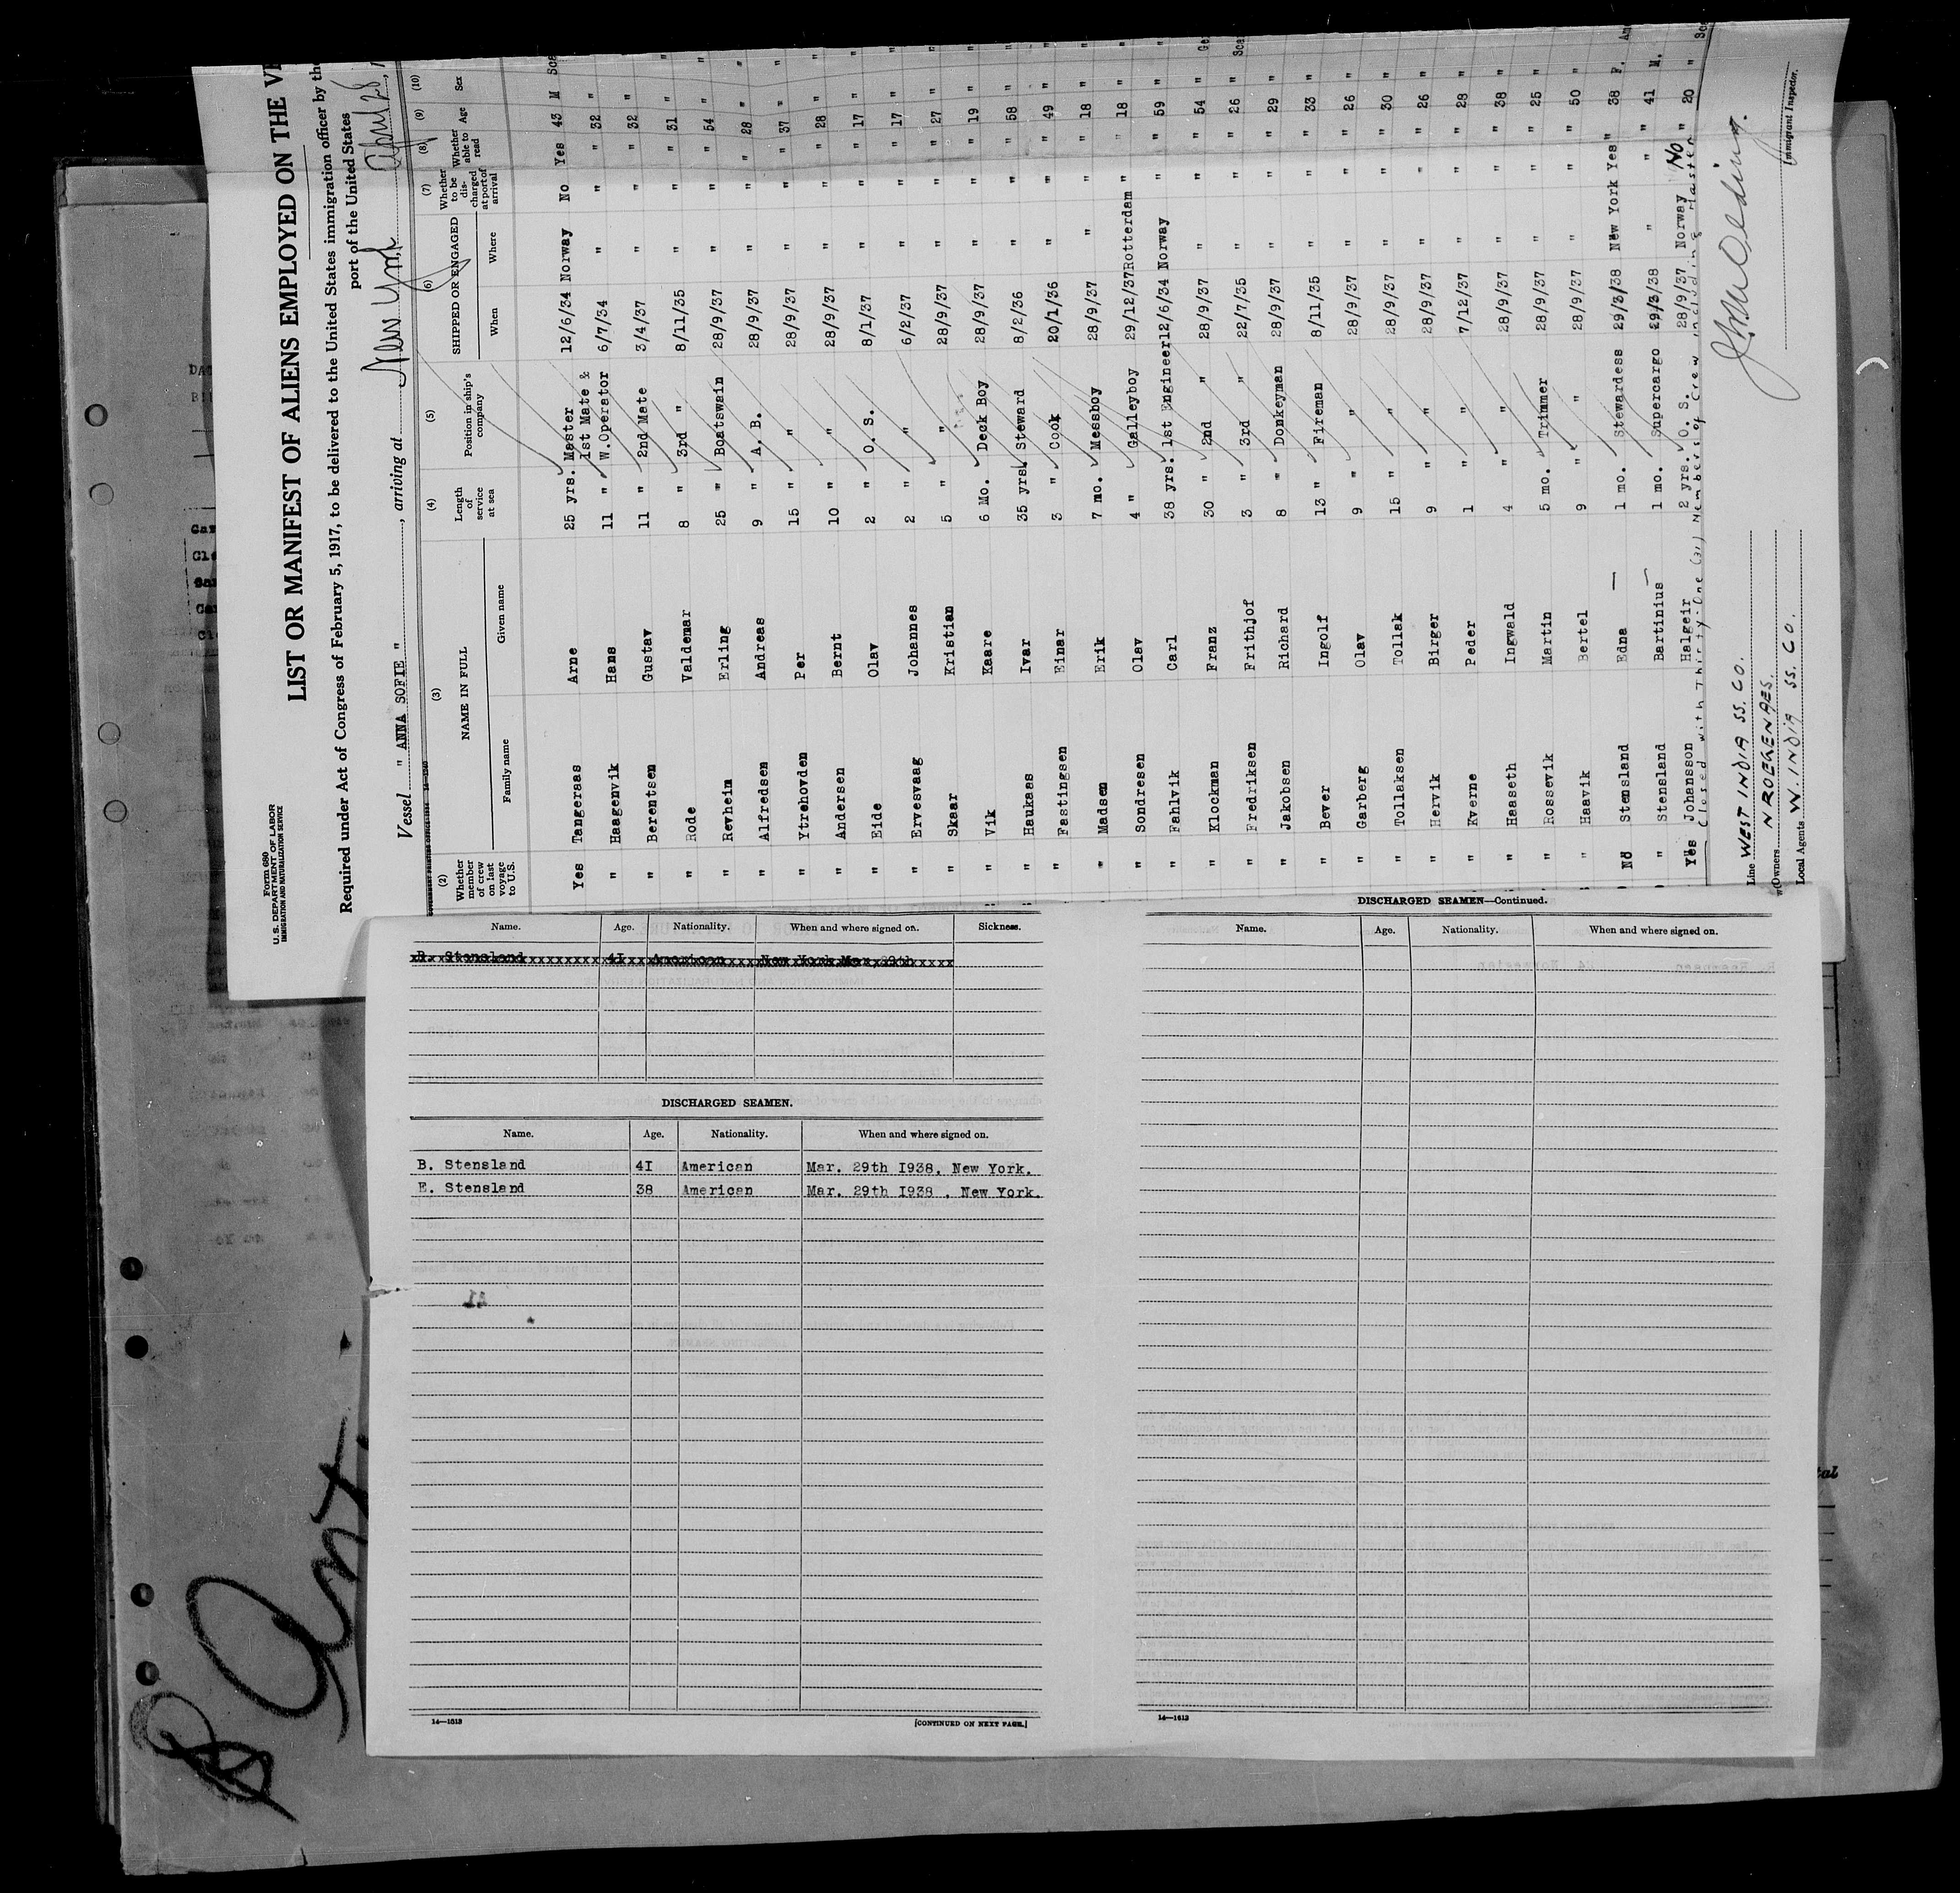 Form 680
U. S. DEPARTMENT OF LABOR
IMMIGRATION AND NATURALIZATION SERVICE
LIST OR MANIFEST OF ALIENS EMPLOYED ON THE
Required under Act of Congress of February 5, 1917, to be delivered to the United States immigration officer by the
port of the United States
Vessel " ANNA SOFIE ", arriving at New York April 28
(2) (3) (4) (5) (6) (7) (8) (9) (10)
Whether member of crew on last voyage to U.S. NAME IN FULL Family name Given name Length of service at sea Position in ship's company SHIPPED OR ENGAGED When Where Whether to be discharged at port of arrival Whether able to read Age Sex
Yes Tangeraas Arne 25 yrs. Master 12/6/34 Norway No Yes 43 M
" Haagenvik Hans 11 " 1st Mate & W.Operator 6/7/34 " " " 32 "
" Berentsen Gustav 11 " 2nd Mate 3/4/37 " " " 32 "
" Rode Valdemar 8 " 3rd " 8/11/35 " " " 31 "
" Revheim Erling 25 " Boatswain 28/9/37 " " " 54 "
" Alfredsen Andreas 9 " A. B. 28/9/37 " " " 28 "
" Ytrehovden Per 15 " " 28/9/37 " " " 37 "
" Andersen Bernt 10 " " 28/9/37 " " " 28 "
" Eide Olav 2 " O. S. 8/1/37 " " " 17 "
" Ervesvaag Johannes 2 " " 6/2/37 " " " 17 "
" Skaar Kristian 5 " " 28/9/37 " " " 27 "
" Vik Kaare 6 Mo. Deck Boy 28/9/37 " " " 19 "
" Haukaas Ivar 35 yrs. Steward 8/2/36 " " " 58 "
" Fastingsen Einar 3 " Cook 20/1/36 " " " 49 "
" Madsen Erik 7 mo. Messboy 28/9/37 " " " 18 "
" Sondresen Olav 4 " Galleyboy 29/12/37 Rotterdam " " 18 "
" Fahlvik Carl 38 yrs. 1st Engineer 12/6/34 Norway " " 59 "
" Klockman Franz 30 " 2nd " 28/9/37 " " " 54 "
" Fredriksen Frithjof 3 " 3rd " 22/7/35 " " " 26 "
" Jakobsen Richard 8 " Donkeyman 28/9/37 " " " 29 "
" Bever Ingolf 13 " Fireman 8/11/35 " " " 33 "
" Garberg Olav 9 " " 28/9/37 " " " 26 "
" Tollaksen Tollak 15 " " 28/9/37 " " " 30 "
" Hervik Birger 9 " " 28/9/37 " " " 26 "
" Kverne Peder 1 " " 7/12/37 " " " 28 "
" Haaseth Ingwald 4 " " 28/9/37 " " " 38 "
" Rossevik Martin 5 mo. Trimmer 28/9/37 " " " 25 "
" Haavik Bertel 9 " " 28/9/37 " " " 50 "
No Stensland Edna 1 mo. Stewardess 29/3/38 New York Yes " 38 F.
" Stensland Bartinius 1 mo. Supercargo 29/3/38 " " " 41 M.
Yes Johansson Halgeir 2 yrs. O. S. 28/9/37 Norway No " 20 "
Closed with Thirty-One (31) Members of Crew including Master
Line WEST INDIA SS. CO.
Owners N ROEGENAES.
Local Agents W. INDIA SS. CO.
Immigrant Inspector.
Name. Age. Nationality. When and where signed on. Sickness.
B. Stensland 4I American New York Mar, 29th
DISCHARGED SEAMEN.
Name. Age. Nationality. When and where signed on.
B. Stensland 4I American Mar. 29th I938, New York.
E. Stensland 38 American Mar. 29th I938 , New York.
14—1613
[CONTINUED ON NEXT PAGE.]
DISCHARGED SEAMEN—Continued.
Name. Age. Nationality. When and where signed on.
14—1613